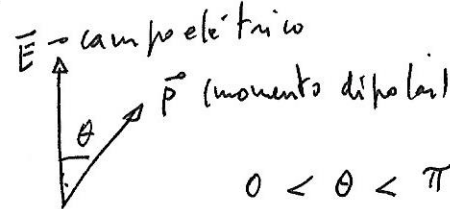 E⃗ → campo elétrico
p⃗ (momento dipolar)
θ
0 < θ < π